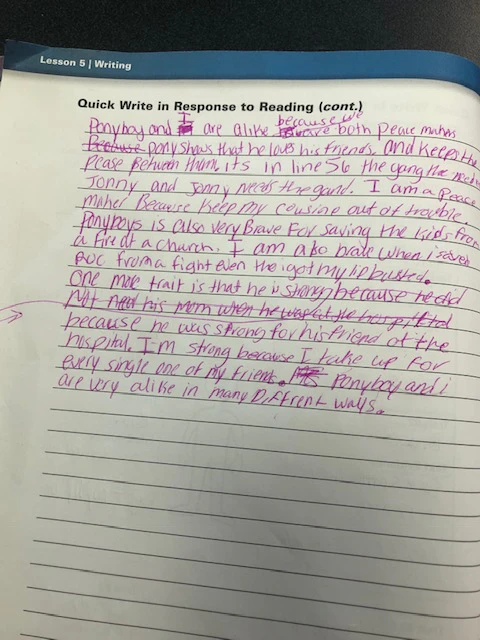 Lesson 5 | Writing
Quick Write in Response to Reading (cont.)
I because we
Ponyboy and are alike both peace makers
Because pony shows that he loves his friends, and keeps the
pease Between them, its in line 56 the gang the need
Jonny and Jonny needs the gand. I am a peace
maker Because keep my cousins out of trouble.
Ponyboys is also very Brave For saving the kids from
a fire at a church. I am also brave when i saved
from a fight even tho i got my lip busted.
One more trait is that he is strong because he did
Not need his mom when he was at the hospital
because he was strong for his friend at the
hospital. I'm strong because I take up for
every single one of my friends. Ponyboy and i
are very alike in many Diffrent ways.